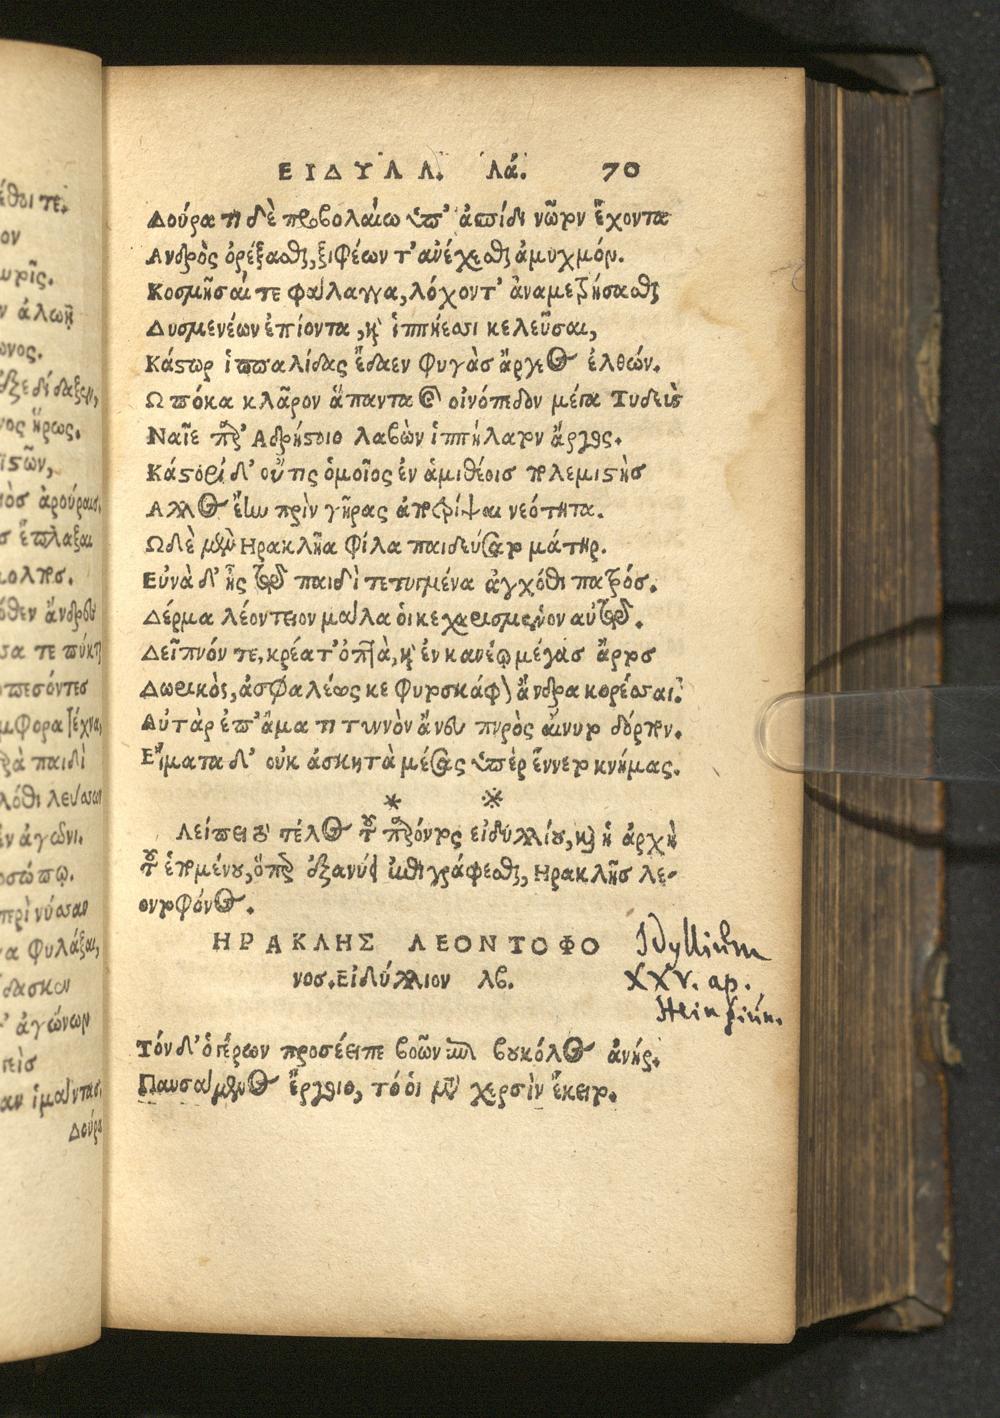 ΕΙΔΥΛΛ. λά. 70
Δούρατι δὲ προβολαίῳ ὑπ' ἀσπίδι νῶτον ἔχοντα
Ανδρὸς ὀρέξασθαι, ξιφέων τ' ἀνέχεσθαι ἀμυχμόν.
Κοσμῆσαί τε φάλαγγα, λόχον τ' ἀναμετρήσασθαι
Δυσμενέων ἐπίοντα, καὶ ἱππήεσσι κελεῦσαι,
Κάστωρ ἱππαλίδας ἔδαεν φυγὰς ἄργεος ἐλθών.
Ωπόκα κλᾶρον ἅπαντα καὶ οἰνόπεδον μέγα Τυδεὺς
Ναῖε παρ' Αδρήστοιο λαβὼν ἱππήλατον ἄργος.
Κάστορι δ' οὔτις ὁμοῖος ἐν ἁμιθέοισ πολεμιστὴς
Αλλος ἔην πρὶν γῆρας ἀποτρίψαι νεότητα.
Ωδὲ μὲν Ηρακλῆα φίλα παιδεύσατο μάτηρ.
Εὐνὰ δ' ἦς τῷ παιδὶ τετυγμένα ἀγχόθι πατρός.
Δέρμα λέοντειον μάλα οἱ κεχαρισμένον αὐτῷ.
Δεῖπνόν τε, κρέατ' ὀπτὰ, καὶ ἐν κανέῳ μέγας ἄρτος
Δωρικὸς, ἀσφαλέως κε φυτοσκάφον ἄνδρα κορέσσαι.
Αὐτὰρ ἐπ' ἄματι τυννὸν ἄνευ πυρὸς αἴνυτο δόρπον.
Εἵματα δ' οὐκ ἀσκητὰ μέσας ὑπὲρ ἕννετο κνήμας.
* ※
Λείπει τὸ τέλος τοῦ παρόντος εἰδυλλίου, καὶ ἡ ἀρχὴ
τοῦ ἑπομένου, ὅπερ ἐπιγράφεσθαι, Ηρακλῆς λε-
οντοφόνος.
ΗΡΑΚΛΗΣ ΛΕΟΝΤΟΦΟ
νος. Εἰδύλλιον λβ.
Idyllium
XXV. ap.
Heinsium.
Τὸν δ' ὁ γέρων προσέειπε βοῶν ἐπὶ βουκόλος ἀνήρ.
Παυσάμενος ἔργοιο, τό οἱ μετὰ χερσὶν ἔκειτο.
έθοι τε.
ον
ν ἀλωῇ
ωνος.
νος ἥρως.
ἀρούραις,
ὅθεν ἄνδρες
τε πύκτη
παιδὶ
ἐν ἀγῶνι.
φυλάξαι,
ἀγώνων
ἱμάντας.
Δούρα